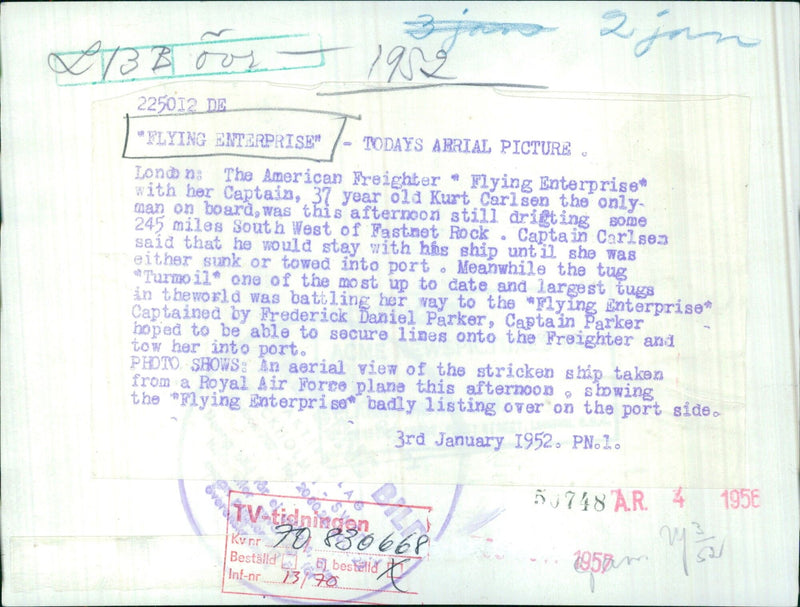 3 jan 2 jan
L 13 B övr — 1952
225012 DE
"FLYING ENTERPRISE" - TODAYS AERIAL PICTURE .
London: The American Freighter " Flying Enterprise"
with her Captain, 37 year old Kurt Carlsen the only-
man on board,was this afternoon still drigting some
245 miles South West of Fastnet Rock . Captain Carlsen
said that he would stay with his ship until she was
either sunk or towed into port . Meanwhile the tug
"Turmoil" one of the most up to date and largest tugs
in theworld was battling her way to the "Flying Enterprise"
Captained by Frederick Daniel Parker, Captain Parker
hoped to be able to secure lines onto the Freighter and
tow her into port.
PHOTO SHOWS: An aerial view of the stricken ship taken
from a Royal Air Force plane this afternoon . showing
the "Flying Enterprise" badly listing over on the port side.
3rd January 1952. PN.1.
50748 A.R. 4 1956
BILD
TV-tidningen
Kv nr 70 830668
Beställd Ej beställd X
Inf-nr 13/70
1957
3/52